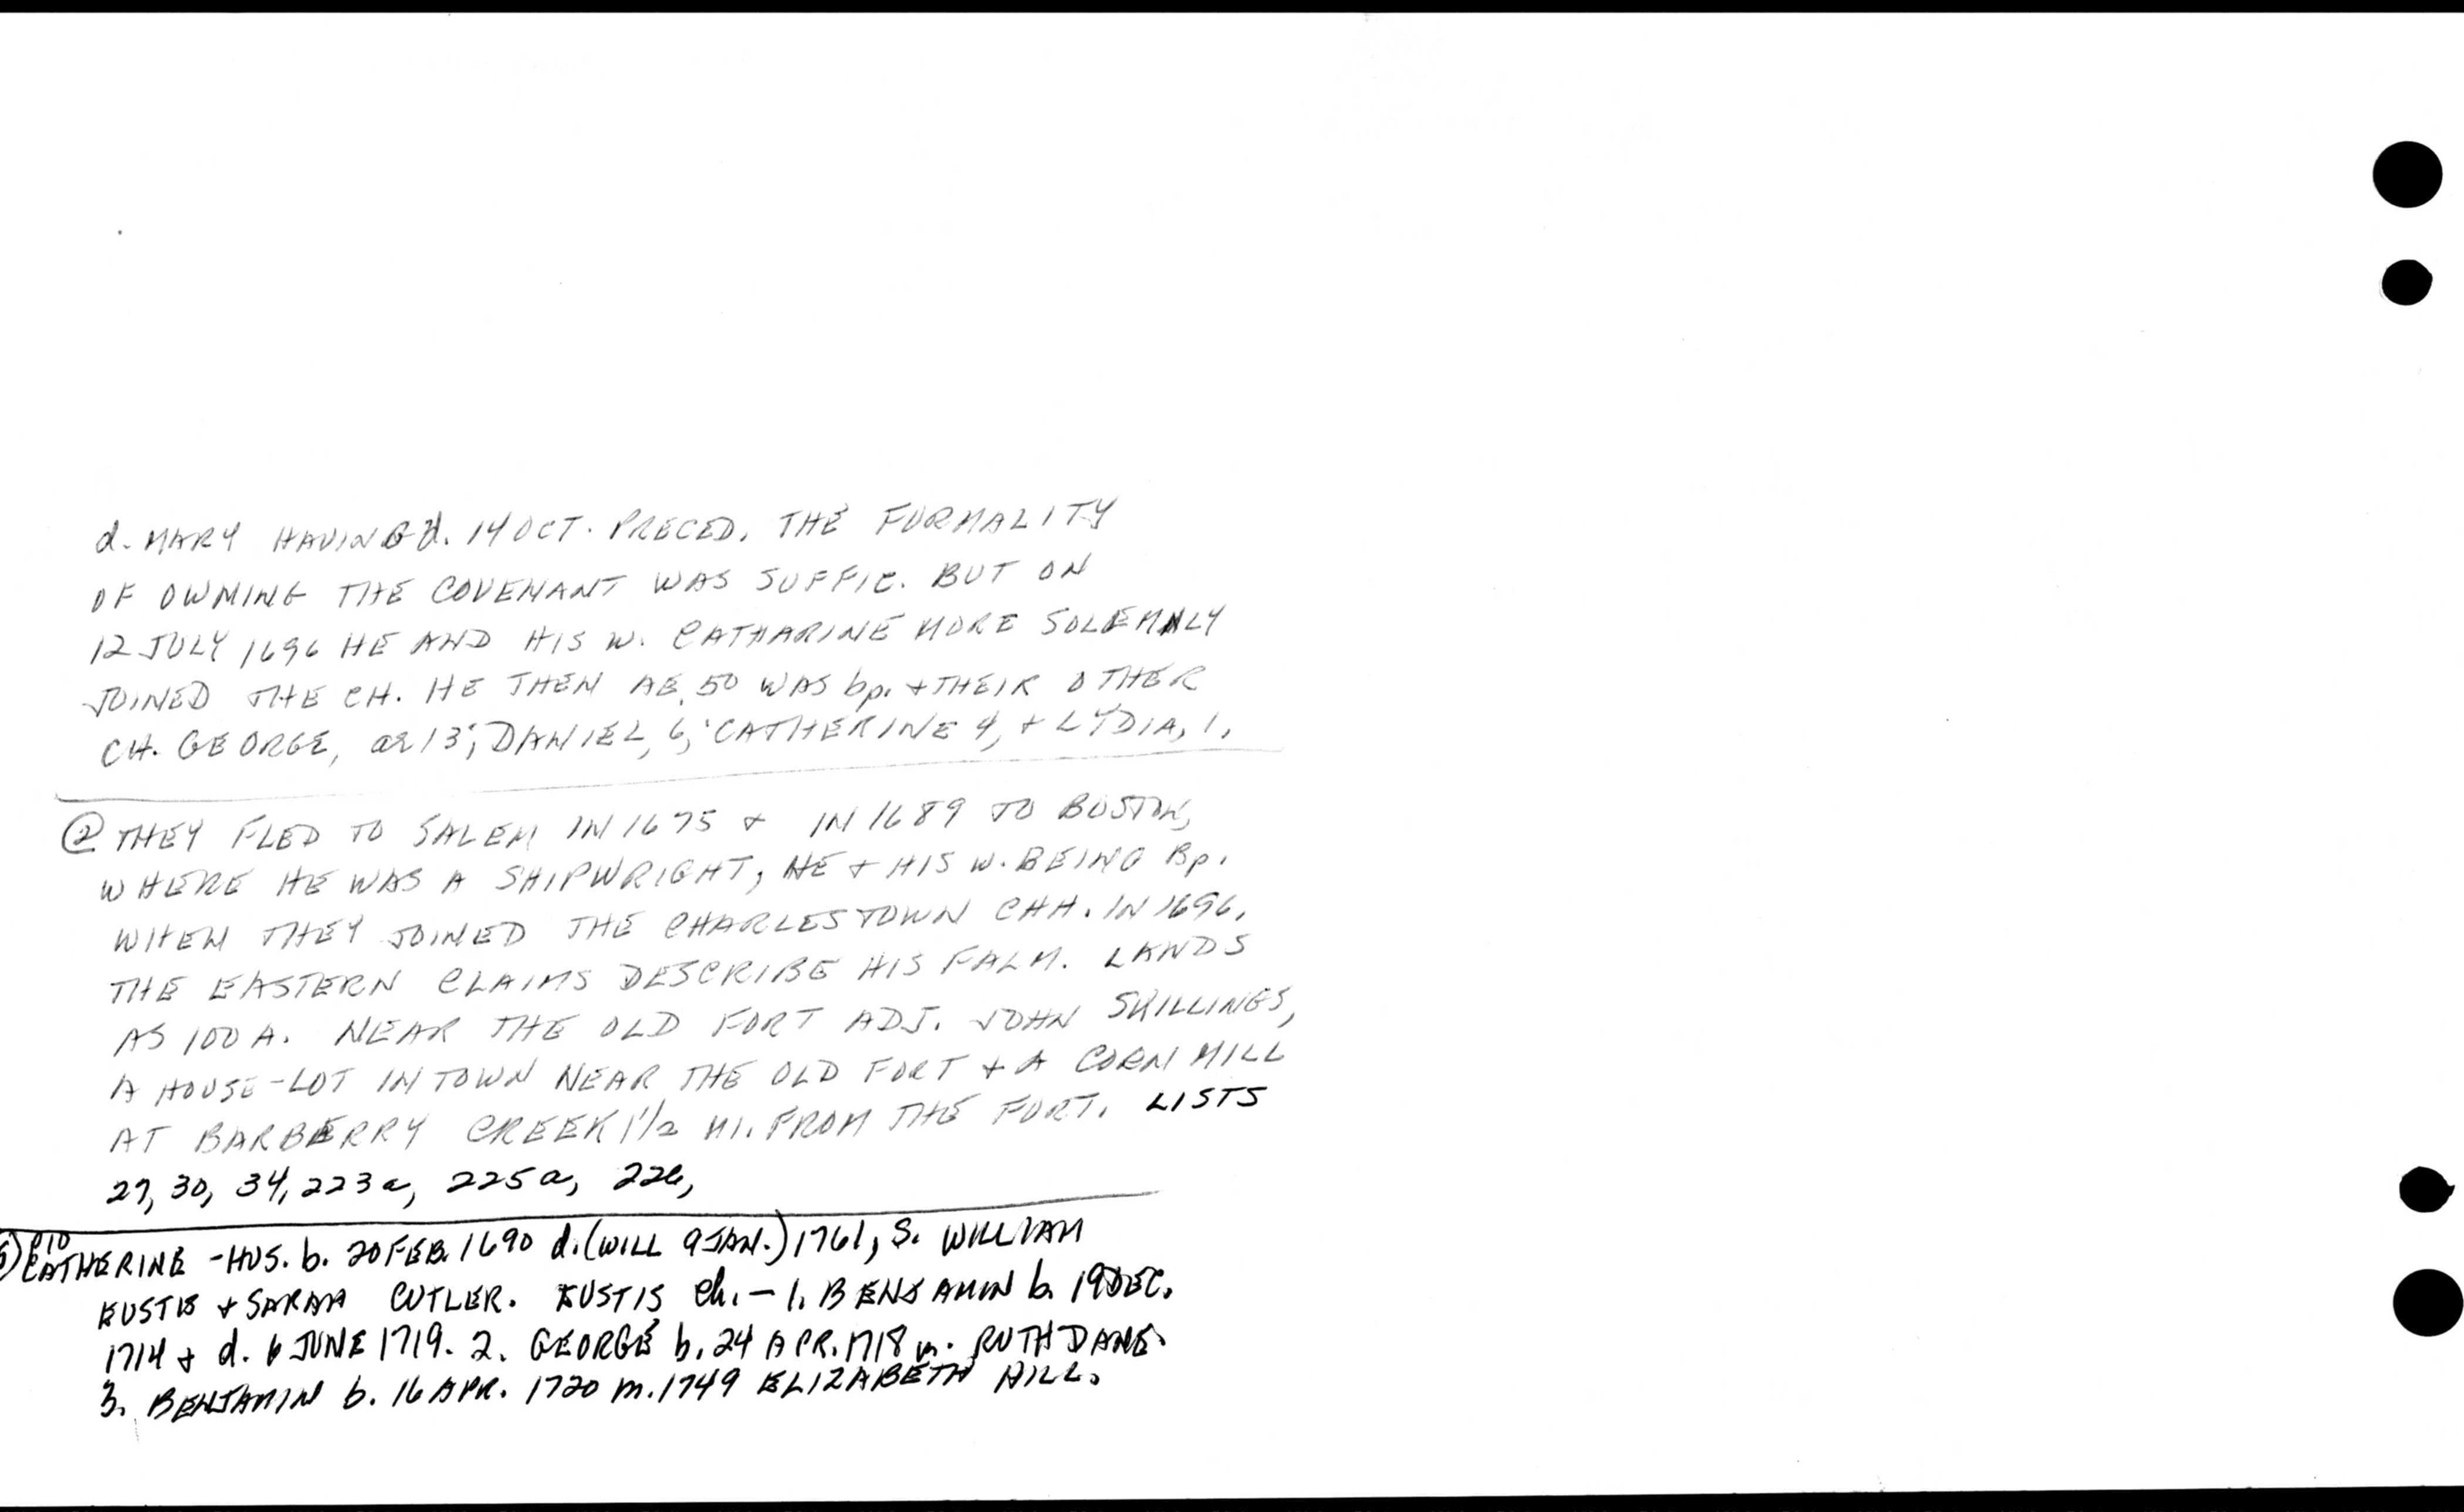 d. MARY HAVING d. 14 OCT. PRECED. THE FORMALITY
OF OWNING THE COVENANT WAS SUFFIC. BUT ON
12 JULY 1696 HE AND HIS W. CATHARINE MORE SOLEMNLY
JOINED THE CH. HE THEN AE. 50 WAS bp. + THEIR OTHER
CH. GEORGE, ae 13; DANIEL, 6; CATHERINE 4, + LYDIA, 1.
② THEY FLED TO SALEM IN 1675 + IN 1689 TO BOSTON,
WHERE HE WAS A SHIPWRIGHT, HE + HIS W. BEING Bp.
WHEN THEY JOINED THE CHARLESTOWN CHH. IN 1696.
THE EASTERN CLAIMS DESCRIBE HIS FALM. LANDS
AS 100 A. NEAR THE OLD FORT ADJ. JOHN SKILLINGS,
A HOUSE-LOT IN TOWN NEAR THE OLD FORT + A CORN MILL
AT BARBERRY CREEK 1 1/2 MI. FROM THE FORT. LISTS
27, 30, 34, 223a, 225a, 226,
CATHERINE - HUS. b. 20 FEB. 1690 d. (WILL 9 JAN.) 1761, S. WILLIAM
EUSTIS + SARAH CUTLER. EUSTIS ch. - 1. BENJAMIN b. 19 DEC.
1714 + d. 6 JUNE 1719. 2. GEORGE b. 24 APR. 1718 m. RUTH DANE.
3. BENJAMIN b. 16 APR. 1720 m. 1749 ELIZABETH HILL.